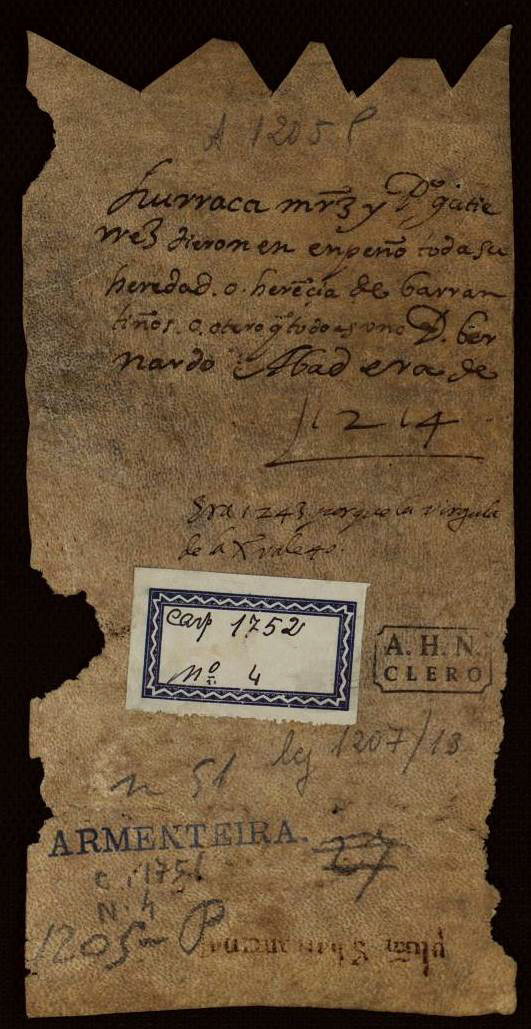 A 1205 P
hurraca mrz y Po gutie
rrez dieron en enpeño toda su
heredad. o. herēçia de barran
tiños. o. otero q̃ todo es uno D. ber
nardo Abad era de
1214
Era 1243 porque la virgula
de la X vale 40.
Carp 1752
Nº 4
A. H. N.
CLERO
leg 1207/13
n 51
ARMENTEIRA.
27
C. 1751
N. 4
1205- P